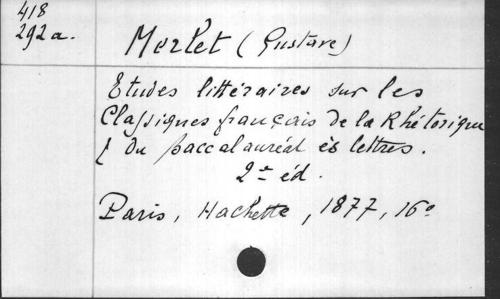 418
292a.
Merlet (Gustave)
Etudes littéraires sur les
Classiques français de la Rhétorique
& Du baccalauréat ès lettres.
2e éd.
Paris, Hachette, 1877, 16º